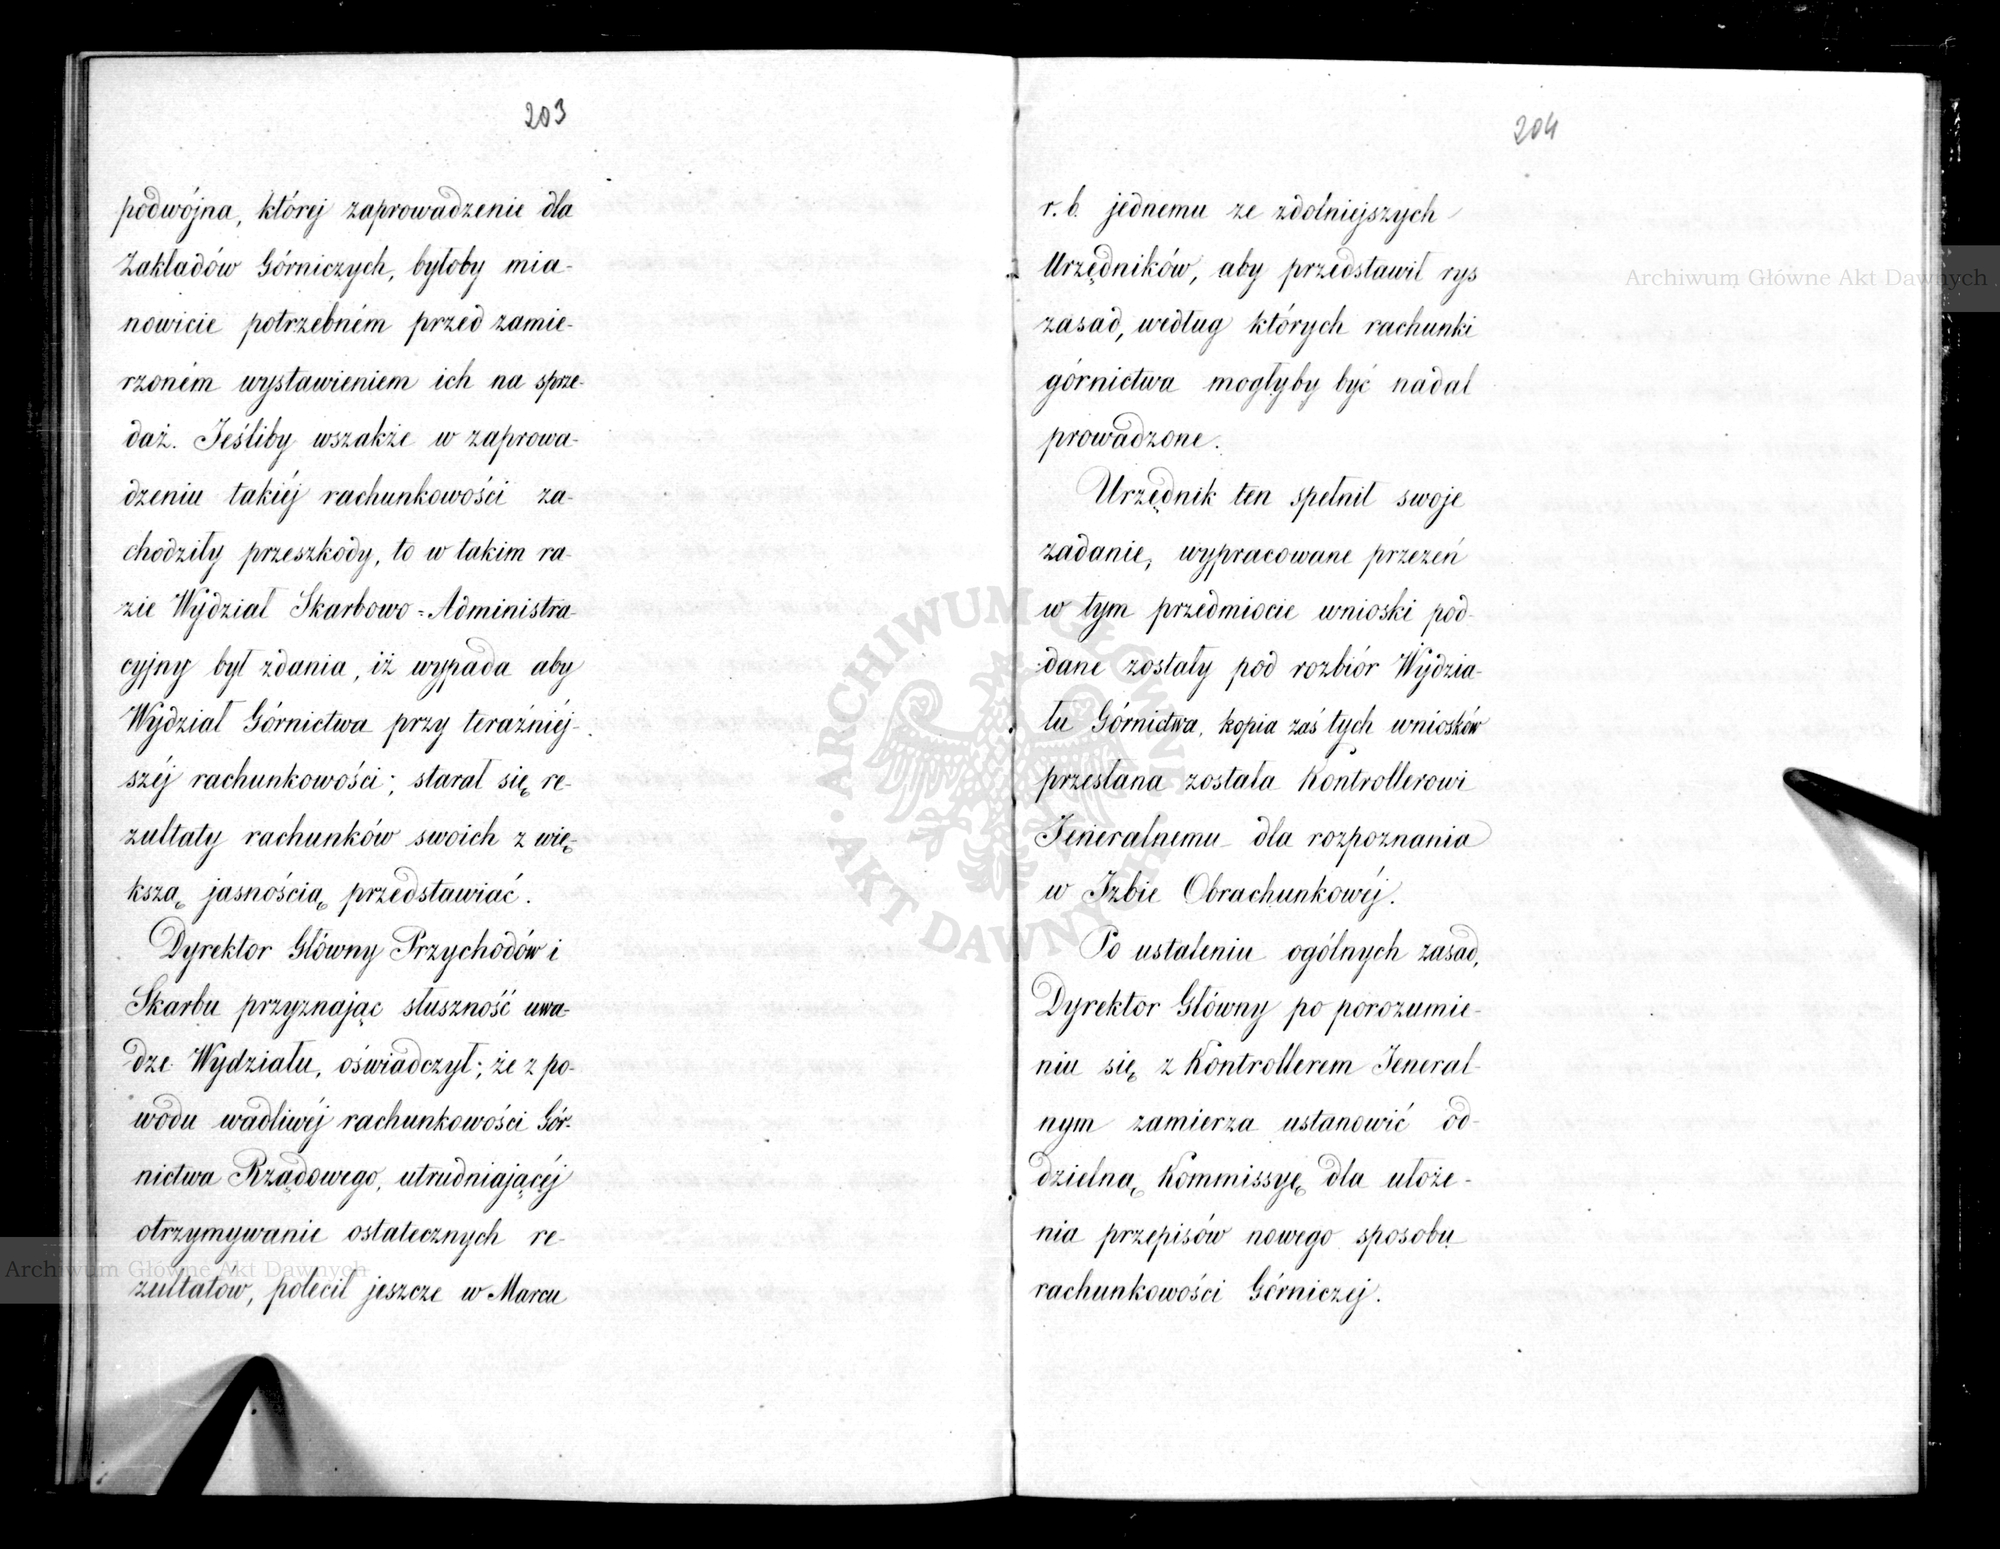 203
podwójna, któréj zaprowadzenie dla
Zakładów Górniczych, byłoby mia-
nowicie potrzebném przed zamie-
rzoném wystawieniem ich na sprze-
daż. Jeśliby wszakże w zaprowa-
dzeniu takiéj rachunkowości za-
chodziły przeszkody, to w takim ra-
zie Wydział Skarbowo-Administra-
cyjny był zdania, iż wypada aby
Wydział Górnictwa przy teraźniéj-
széj rachunkowości; starał się re-
zultaty rachunków swoich z wię-
kszą jasnością przedstawiać.
Dyrektor Główny Przychodów i
Skarbu przyznając słuszność uwa-
dze Wydziału, oświadczył; że z po-
wodu wadliwéj rachunkowości Gór-
nictwa Rządowego, utrudniającéj
otrzymywanie ostatecznych re-
zultatów, polecił jeszcze w Marcu
204
r. b. jednemu ze zdolniejszych
Urzędników, aby przedstawił rys
zasad, według których rachunki
górnictwa mogłyby być nadal
prowadzone.
Urzędnik ten spełnił swoje
zadanie, wypracowane przezeń
w tym przedmiocie wnioski pod-
dane zostały pod rozbiór Wydzia-
łu Górnictwa, kopia zaś tych wniosków
przesłana została Kontrollerowi
Jeneralnemu dla rozpoznania
w Izbie Obrachunkowéj.
Po ustaleniu ogólnych zasad,
Dyrektor Główny po porozumie-
niu się z Kontrollerem Jeneral-
nym zamierza ustanowić od-
dzielną Kommissyę dla ułoże-
nia przepisów nowego sposobu
rachunkowości Górniczéj.
Archiwum Główne Akt Dawnych
Archiwum Główne Akt Dawnych
ARCHIWUM GŁÓWNE AKT DAWNYCH